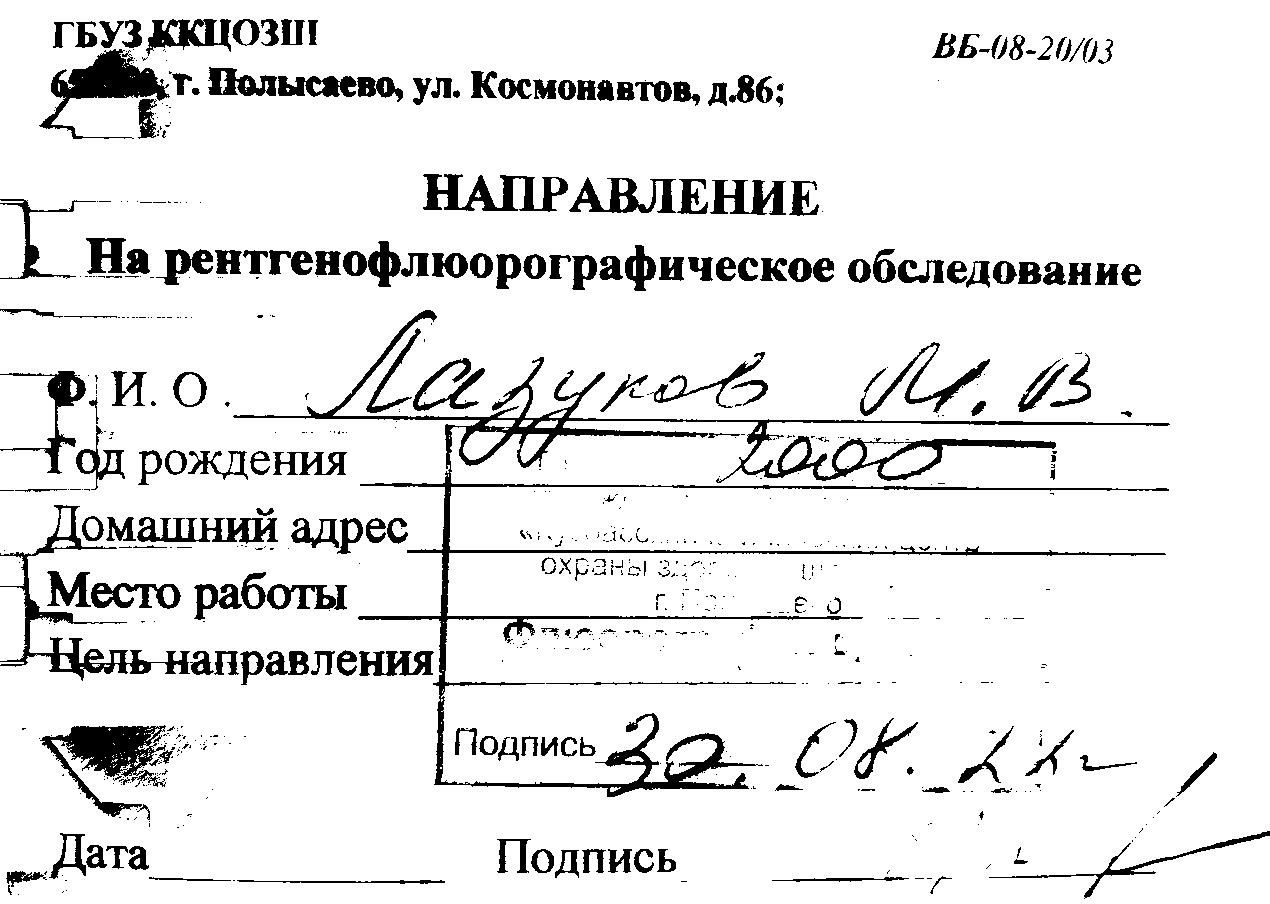 ГБУЗ ККЦОЗШ
ВБ-08-20/03
г. Полысаево, ул. Космонавтов, д.86;
НАПРАВЛЕНИЕ
На рентгенофлюорографическое обследование
Ф. И. О. Лазуков М. В.
Год рождения 2000
Домашний адрес
охраны
Место работы
г.
Цель направления
Подпись 30. 08. 22г
Дата Подпись